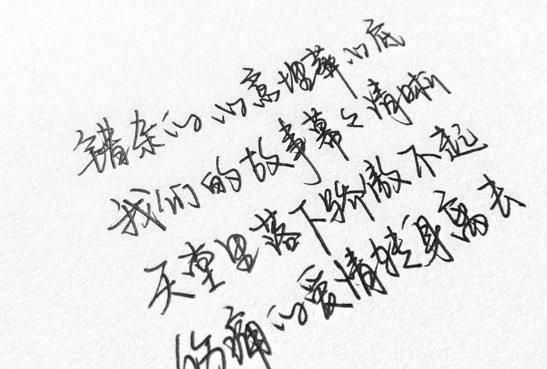 错杂的心意埋葬心底
我们的故事幕幕清晰
天堂里落下骄傲不起
伤痛的爱情转身离去